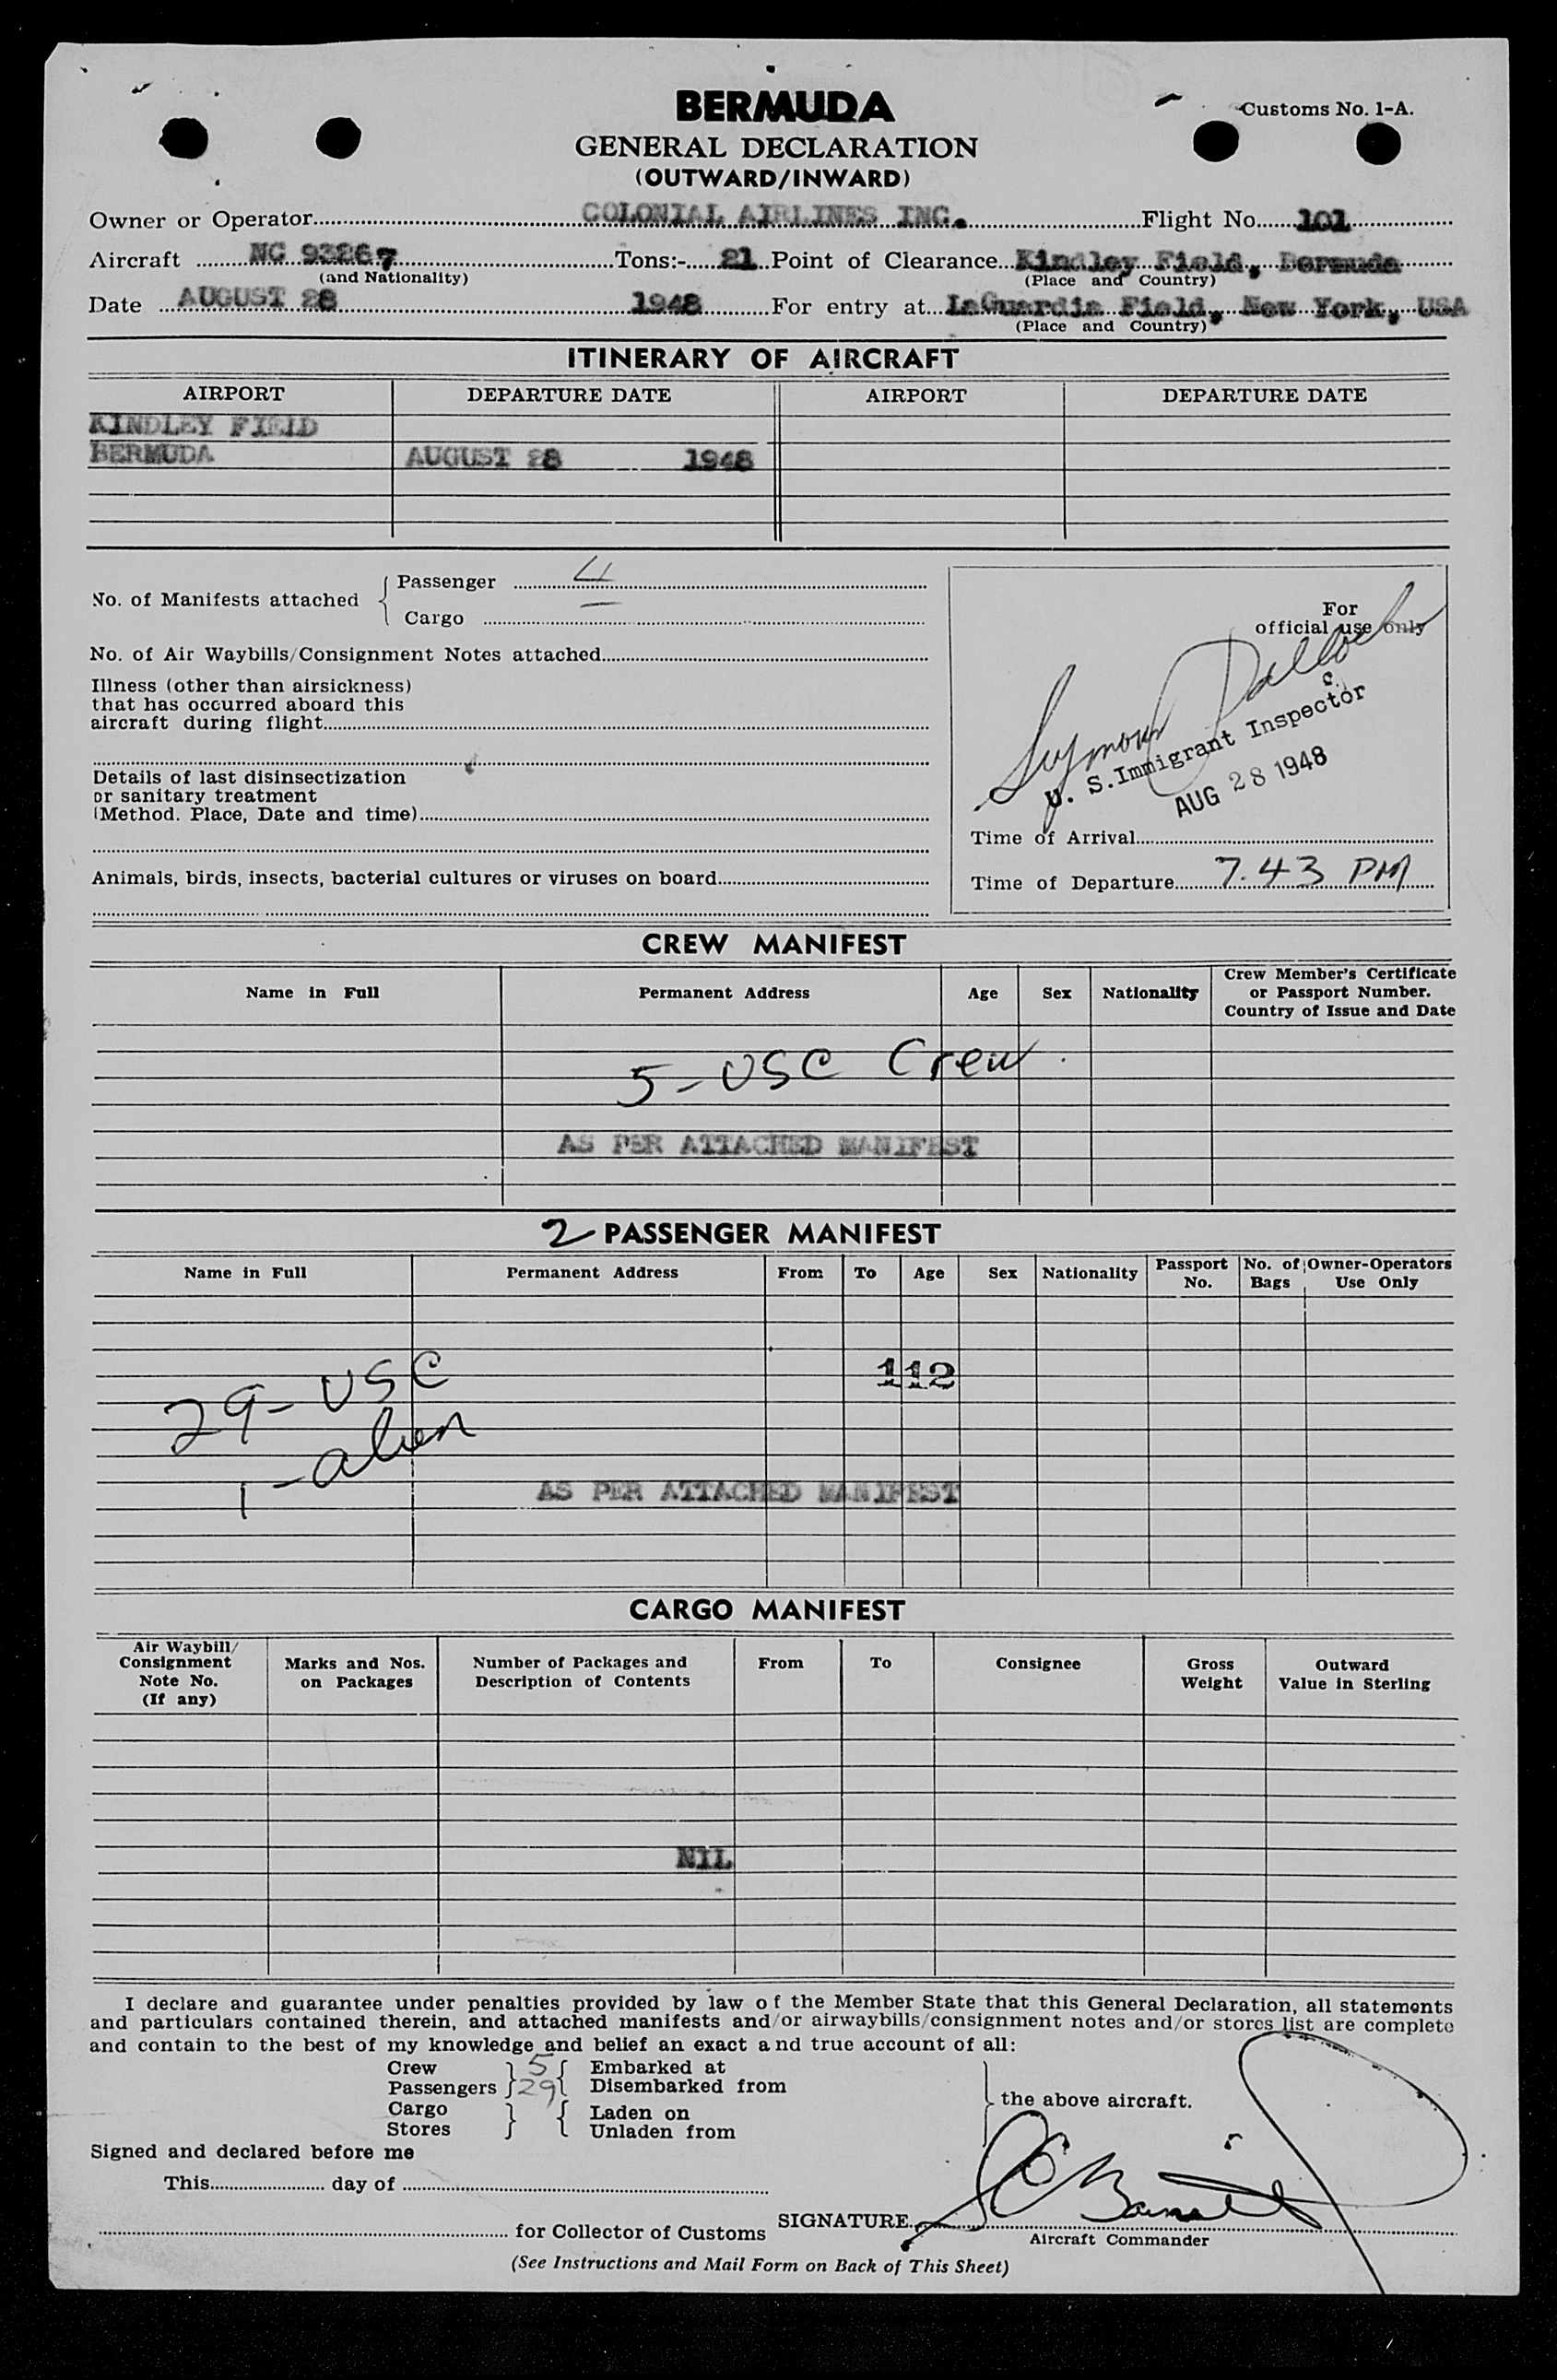 BERMUDA
Customs No. 1-A.
GENERAL DECLARATION
(OUTWARD/INWARD)
Owner or Operator COLONIAL AIRLINES INC. Flight No. 101
Aircraft NC 93267 Tons:- 21 Point of Clearance Kindley Field, Bermuda
(and Nationality) (Place and Country)
Date AUGUST 28 1948 For entry at LaGuardia Field, New York, USA
(Place and Country)
ITINERARY OF AIRCRAFT
AIRPORT DEPARTURE DATE AIRPORT DEPARTURE DATE
KINDLEY FIELD
BERMUDA AUGUST 28 1948
No. of Manifests attached
Passenger 4
Cargo —
No. of Air Waybills/Consignment Notes attached
Illness (other than airsickness)
that has occurred aboard this
aircraft during flight
Details of last disinsectization
or sanitary treatment
(Method. Place, Date and time)
Animals, birds, insects, bacterial cultures or viruses on board
For
official use only
Seymour
U. S. Immigrant Inspector
AUG 28 1948
Time of Arrival
Time of Departure 7.43 PM
CREW MANIFEST
Name in Full Permanent Address Age Sex Nationality Crew Member's Certificate
or Passport Number.
Country of Issue and Date
5- USC Crew
AS PER ATTACHED MANIFEST
2 PASSENGER MANIFEST
Name in Full Permanent Address From To Age Sex Nationality Passport No. No. of Bags Owner-Operators Use Only
112
29- USC
1- alien
AS PER ATTACHED MANIFEST
CARGO MANIFEST
Air Waybill/
Consignment
Note No.
(If any)
Marks and Nos.
on Packages
Number of Packages and
Description of Contents
From
To
Consignee
Gross
Weight
Outward
Value in Sterling
NIL
I declare and guarantee under penalties provided by law of the Member State that this General Declaration, all statements
and particulars contained therein, and attached manifests and/or airwaybills/consignment notes and/or stores list are complete
and contain to the best of my knowledge and belief an exact and true account of all:
Crew 5 Embarked at
Passengers 29 Disembarked from
the above aircraft.
Cargo Laden on
Stores Unladen from
Signed and declared before me
This day of
SIGNATURE
for Collector of Customs
Aircraft Commander
(See Instructions and Mail Form on Back of This Sheet)